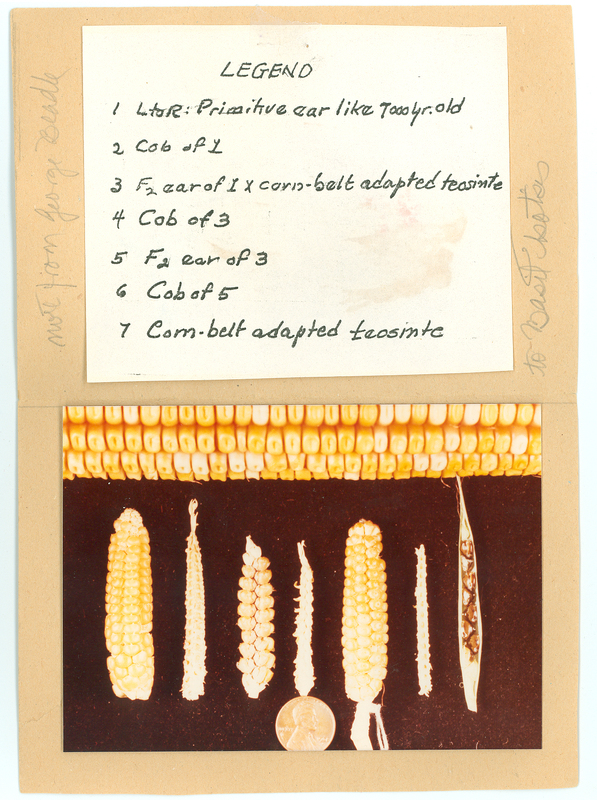 LEGEND
1 LtoR: Primitive ear like 7000yr. old
2 Cob of 1
3 F2 ear of 1 x corn-belt adapted teosinte
4 Cob of 3
5 F2 ear of 3
6 Cob of 5
7 Corn-belt adapted teosinte
note from George Beadle
to Basil